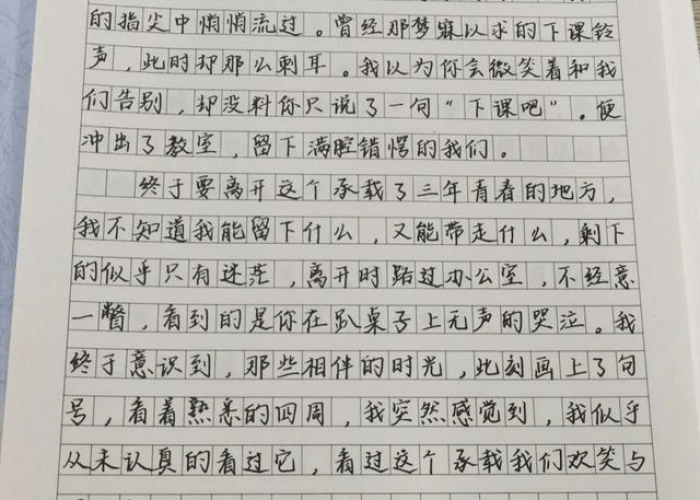 的指尖中悄悄流过。曾经那梦寐以求的下课铃
声，此时却那么刺耳。我以为你会微笑着和我
们告别，却没料你只说了一句“下课吧”。便
冲出了教室，留下满腔错愕的我们。
终于要离开这个承载了三年青春的地方，
我不知道我能留下什么，又能带走什么，剩下
的似乎只有迷茫，离开时路过办公室，不经意
一瞥，看到的是你在趴桌子上无声的哭泣。我
终于意识到，那些相伴的时光，此刻画上了句
号，看着熟悉的四周，我突然感觉到，我似乎
从未认真的看过它，看过这个承载我们欢笑与